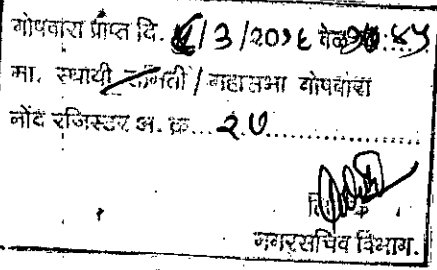 गोषवारा प्राप्त दि. /3/20१६ वेळ :४५
मा. स्थायी समिती / महासभा गोषवारा
नोंद रजिस्टर अ. क्र... २७..............
नगरसचिव विभाग.